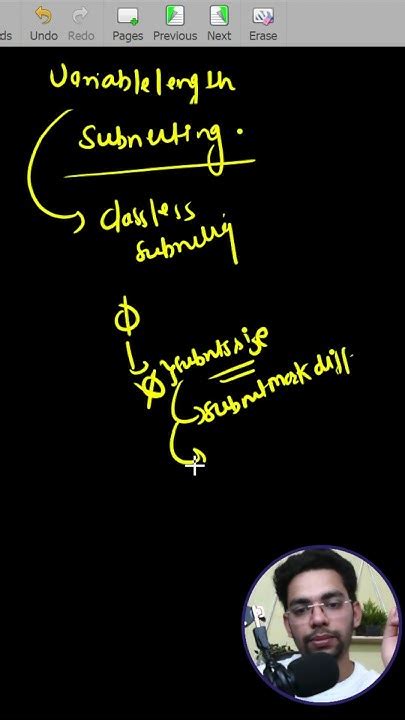 ds Undo Redo Pages Previous Next Erase
Variable length
Subnetting.
classless
subnetting
subnets size
subnetmask diff